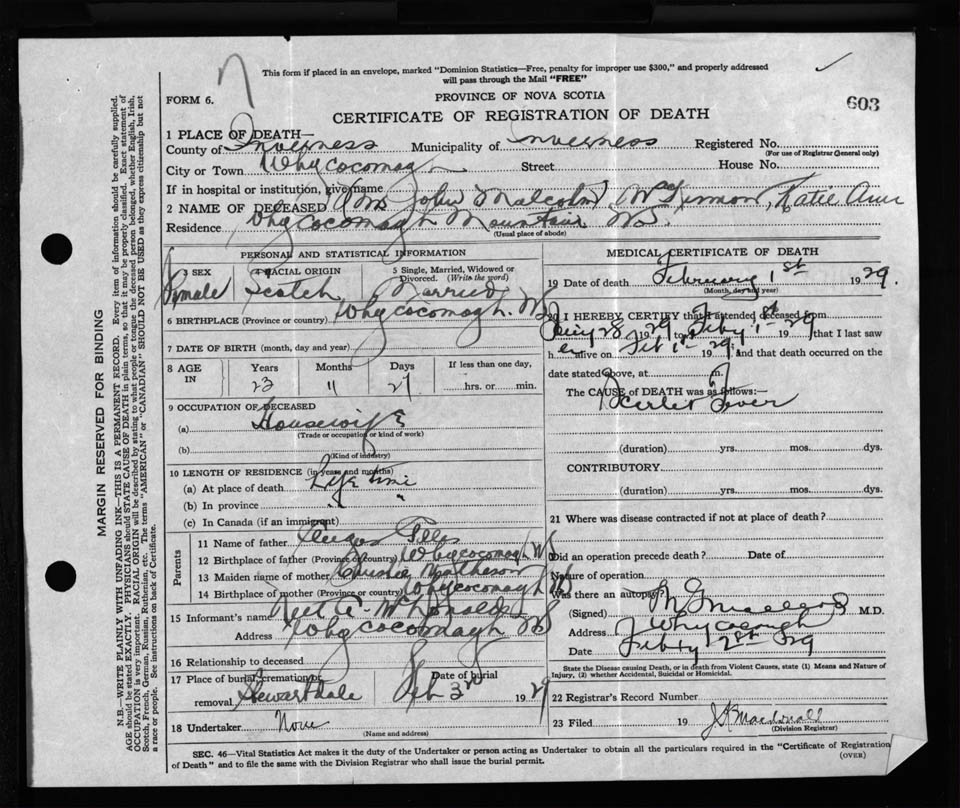 This form if placed in an envelope, marked "Dominion Statistics—Free, penalty for improper use $300," and properly addressed
will pass through the Mail "FREE"
FORM 6.
PROVINCE OF NOVA SCOTIA
603
CERTIFICATE OF REGISTRATION OF DEATH
1 PLACE OF DEATH—
County of Inverness Municipality of Inverness Registered No.
(For use of Registrar General only)
City or Town Whycocomagh Street House No.
If in hospital or institution, give name
2 NAME OF DECEASED (Mrs John Malcolm) McKinnon, Katie Ann
Residence Whycocomagh Mountain NS.
(Usual place of abode)
PERSONAL AND STATISTICAL INFORMATION
3 SEX 4 RACIAL ORIGIN 5 Single, Married, Widowed or Divorced. (Write the word)
Female Scotch Married
6 BIRTHPLACE (Province or country) Whycocomagh. NS
7 DATE OF BIRTH (month, day and year)
8 AGE IN Years Months Days If less than one day,
23 11 27 hrs. or min.
9 OCCUPATION OF DECEASED
(a) Housewife
(Trade or occupation or kind of work)
(b)
(Kind of industry)
10 LENGTH OF RESIDENCE (in years and months)
(a) At place of death Life time
(b) In province " "
(c) In Canada (if an immigrant)
Parents
11 Name of father Angus Gillis
12 Birthplace of father (Province or country) Whycocomagh NS
13 Maiden name of mother Christie Matheson
14 Birthplace of mother (Province or country) Whycocomagh NS
15 Informant's name McDonald
Address Whycocomagh NS
16 Relationship to deceased
17 Place of burial, cremation or removal Date of burial
Stewartdale Feb 3rd 1929
18 Undertaker None
(Name and address)
MEDICAL CERTIFICATE OF DEATH
19 Date of death February 1st 1929.
(Month, day and year)
20 I HEREBY CERTIFY that I attended deceased from
28 1929 to Feby 1st 1929 that I last saw
her alive on Feb 1st 1929 and that death occurred on the
date stated above, at m.
The CAUSE of DEATH was as follows:
Scarlet Fever
(duration) yrs. mos. dys.
CONTRIBUTORY
(duration) yrs. mos. dys.
21 Where was disease contracted if not at place of death?
Did an operation precede death? Date of
Nature of operation
Was there an autopsy?
(Signed) M.D.
Address Whycocomagh
Date Feby 2nd 29
State the Disease causing Death, or in death from Violent Causes, state (1) Means and Nature of
Injury, (2) whether Accidental, Suicidal or Homicidal.
22 Registrar's Record Number
23 Filed 19 Macdonald
(Division Registrar)
SEC. 46—Vital Statistics Act makes it the duty of the Undertaker or person acting as Undertaker to obtain all the particulars required in the "Certificate of Registration
of Death" and to file the same with the Division Registrar who shall issue the burial permit.
(OVER)
MARGIN RESERVED FOR BINDING
N.B.—WRITE PLAINLY WITH UNFADING INK—THIS IS A PERMANENT RECORD. Every item of information should be carefully supplied.
AGE should be stated EXACTLY. PHYSICIANS should STATE CAUSE OF DEATH in plain terms, so that it may be properly classified. Exact statement of
OCCUPATION is very important. RACIAL ORIGIN will be described by stating to what people or tongue the deceased person belonged, whether English, Irish,
Scotch, French, German, Russian, Ruthenian, etc. The terms "AMERICAN" or "CANADIAN" SHOULD NOT BE USED as they express citizenship but not
a race or people. See instructions on back of Certificate.